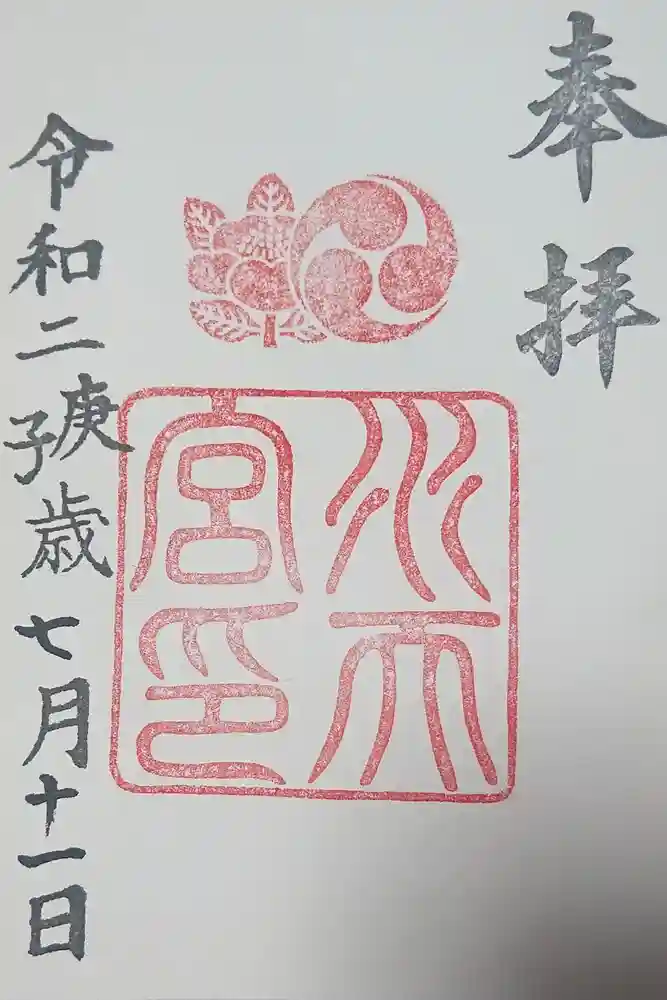 奉拝
水天宮印
令和二庚子歳七月十一日